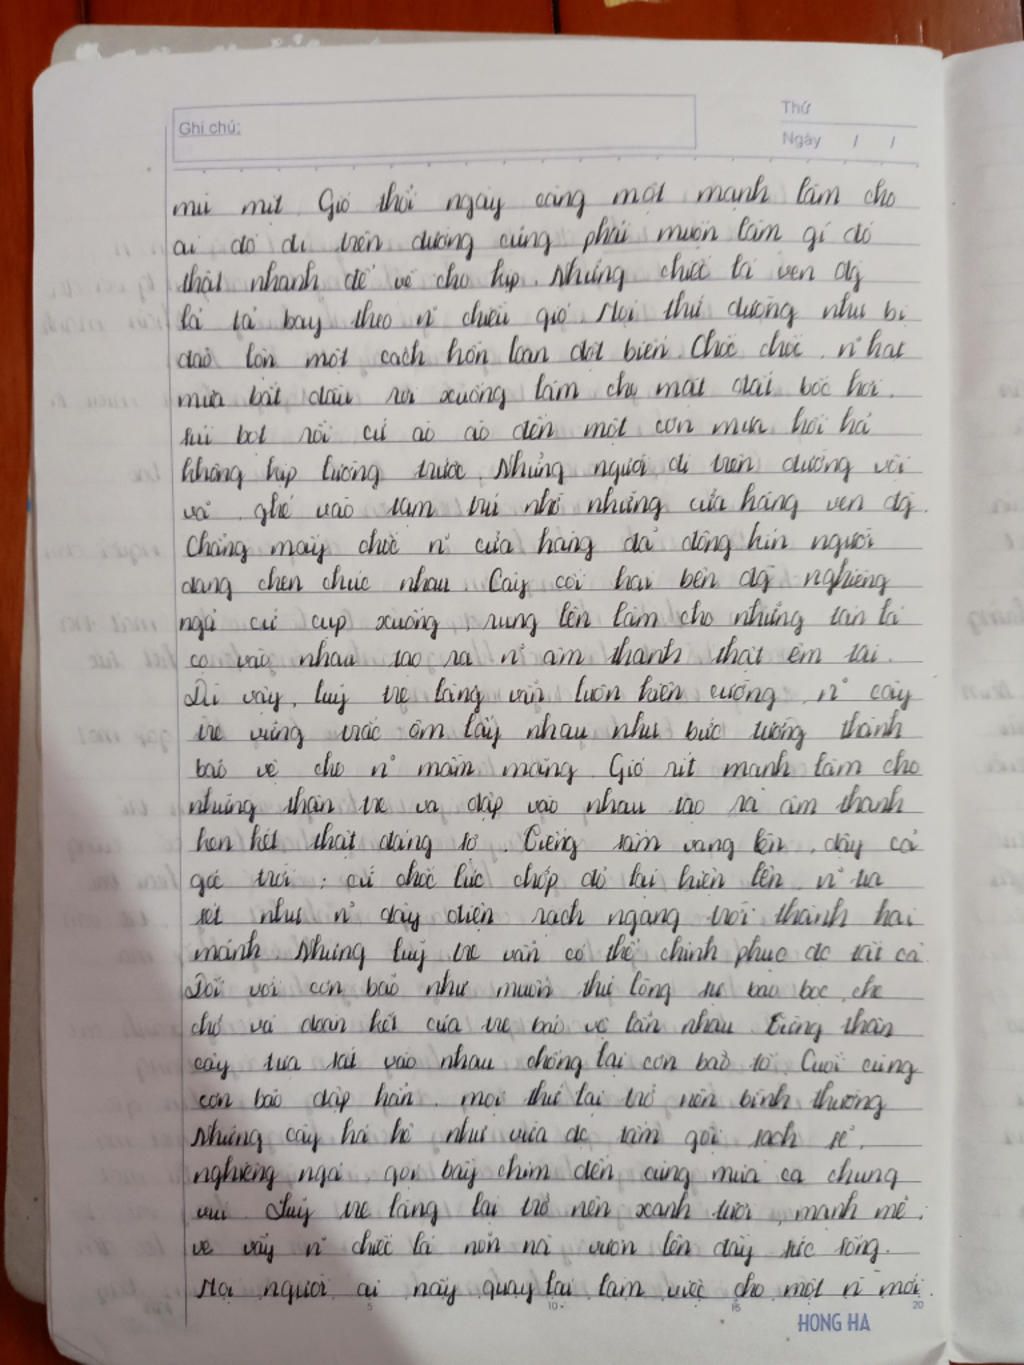 Ghi chú:
Thứ
Ngày / /
mù mịt. Gió thổi ngày càng một mạnh làm cho
ai đó đi trên đường cũng phải muốn làm gì đó
thật nhanh để về cho kịp. Những chiếc lá ven đg
lả tả bay theo n~ chiều gió. Mọi thứ dường như bị
đảo lộn một cách hỗn loạn đột biến. Chốc chốc, n~ hạt
mưa bắt đầu rơi xuống làm cho mặt đất bốc hơi.
sủi bọt rồi cứ ào ào đến một cơn mưa hối hả
không kịp lường trước. Những người đi trên đường vội
vã ghé vào tạm trú nhờ những cửa hàng ven đg.
Chẳng mấy chốc n~ cửa hàng đã đông kín người
đang chen chúc nhau. Cây cối hai bên đg nghiêng
ngả cứ cụp xuống, rung lên làm cho những tán lá
cọ vào nhau tạo ra n~ âm thanh thật êm tai.
Dù vậy, luỹ tre làng vẫn luôn kiên cường, n~ cây
tre vững trãc ôm lấy nhau như bức tường thành
bảo vệ cho n~ mầm măng. Gió rít mạnh làm cho
những thân tre va đập vào nhau tạo ra âm thanh
ken két thật đáng sợ. Tiếng sấm vang lên, dậy cả
góc trời; cứ chốc lúc chớp đỏ lại hiện lên, n~ tia
sét như n~ dây điện rạch ngang trời thành hai
mảnh. Nhưng luỹ tre vẫn có thể chinh phục đc tất cả.
Đối với cơn bão như muốn thử lòng sự bao bọc, che
chở và đoàn kết của tre bảo vệ lẫn nhau. Từng thân
cây tựa sát vào nhau chống lại cơn bão tố. Cuối cùng
cơn bão dập hẳn, mọi thứ lại trở nên bình thường
Những cây hả hê như vừa đc tắm gội sạch sẽ,
nghiêng ngả gọi bầy chim đến cùng múa ca chung
vui. Luỹ tre làng lại trở nên xanh tươi, mạnh mẽ,
vẽ vậy n~ chiếc lá nõn nà vươn lên đầy sức sống.
Mọi người ai nấy quay lại làm việc cho một n~ mới.
5 10 15 20
HONG HA